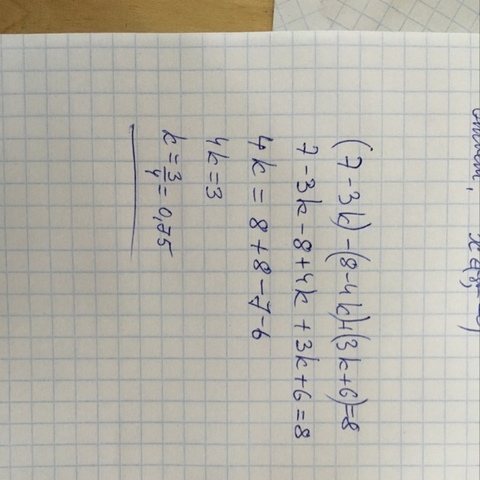 (7-3k)-(8-4k)+(3k+6)=8
7-3k-8+4k+3k+6=8
4k=8+8-7-6
4k=3
k=3/4=0,75